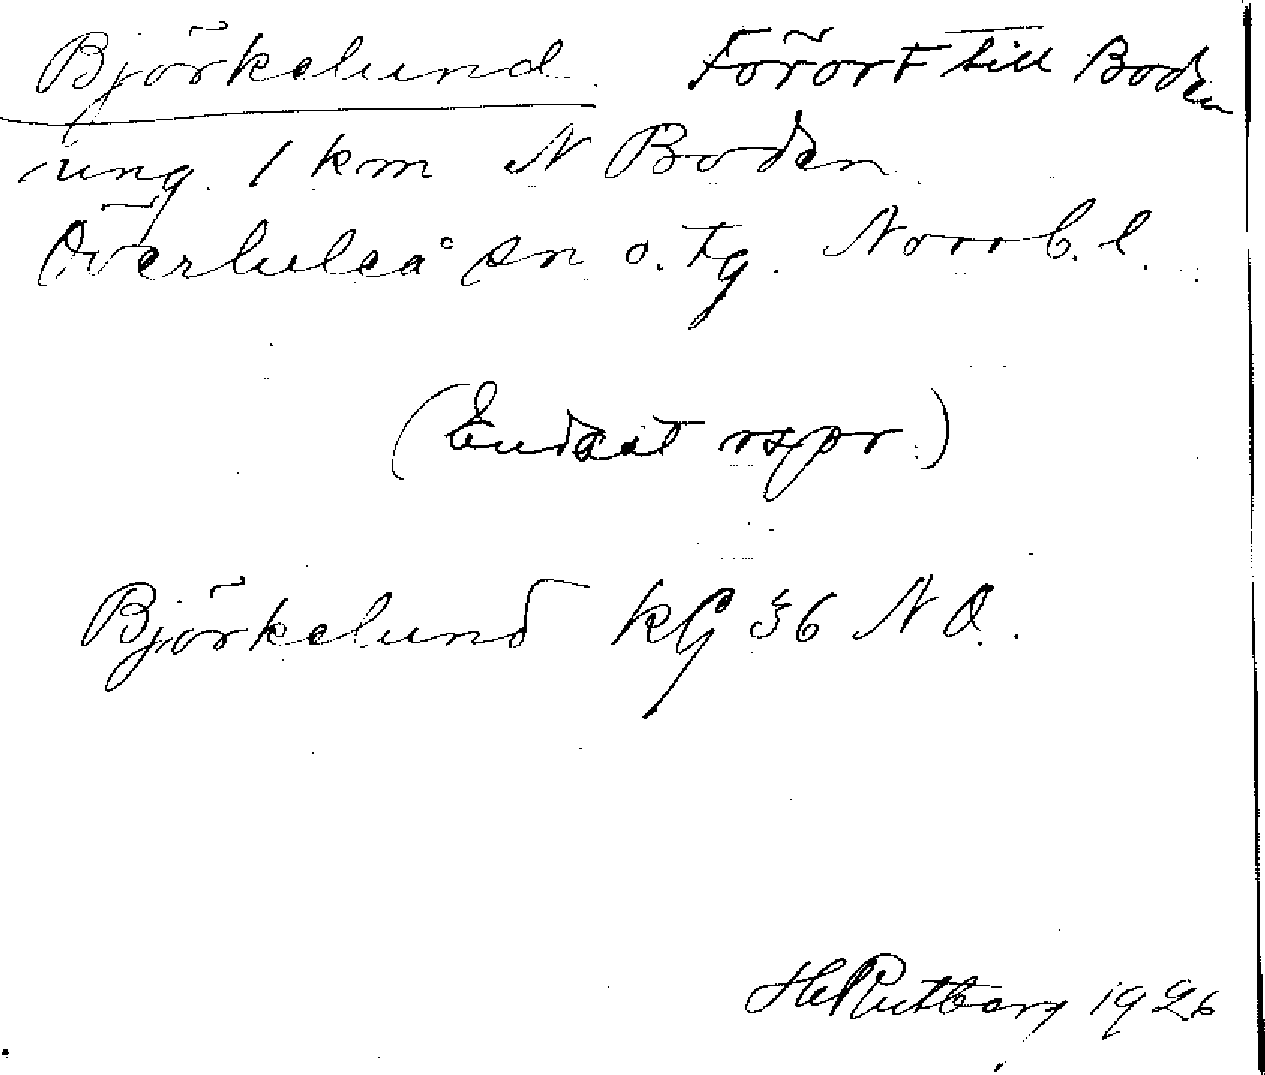 Björkelund. Förort till Boden
ung. 1 km N Boden.
Överluleå sn o. tg. Norrb. l.
(Endast rspr.)
Björkelund kG 36 NO.
H Rutberg 1926